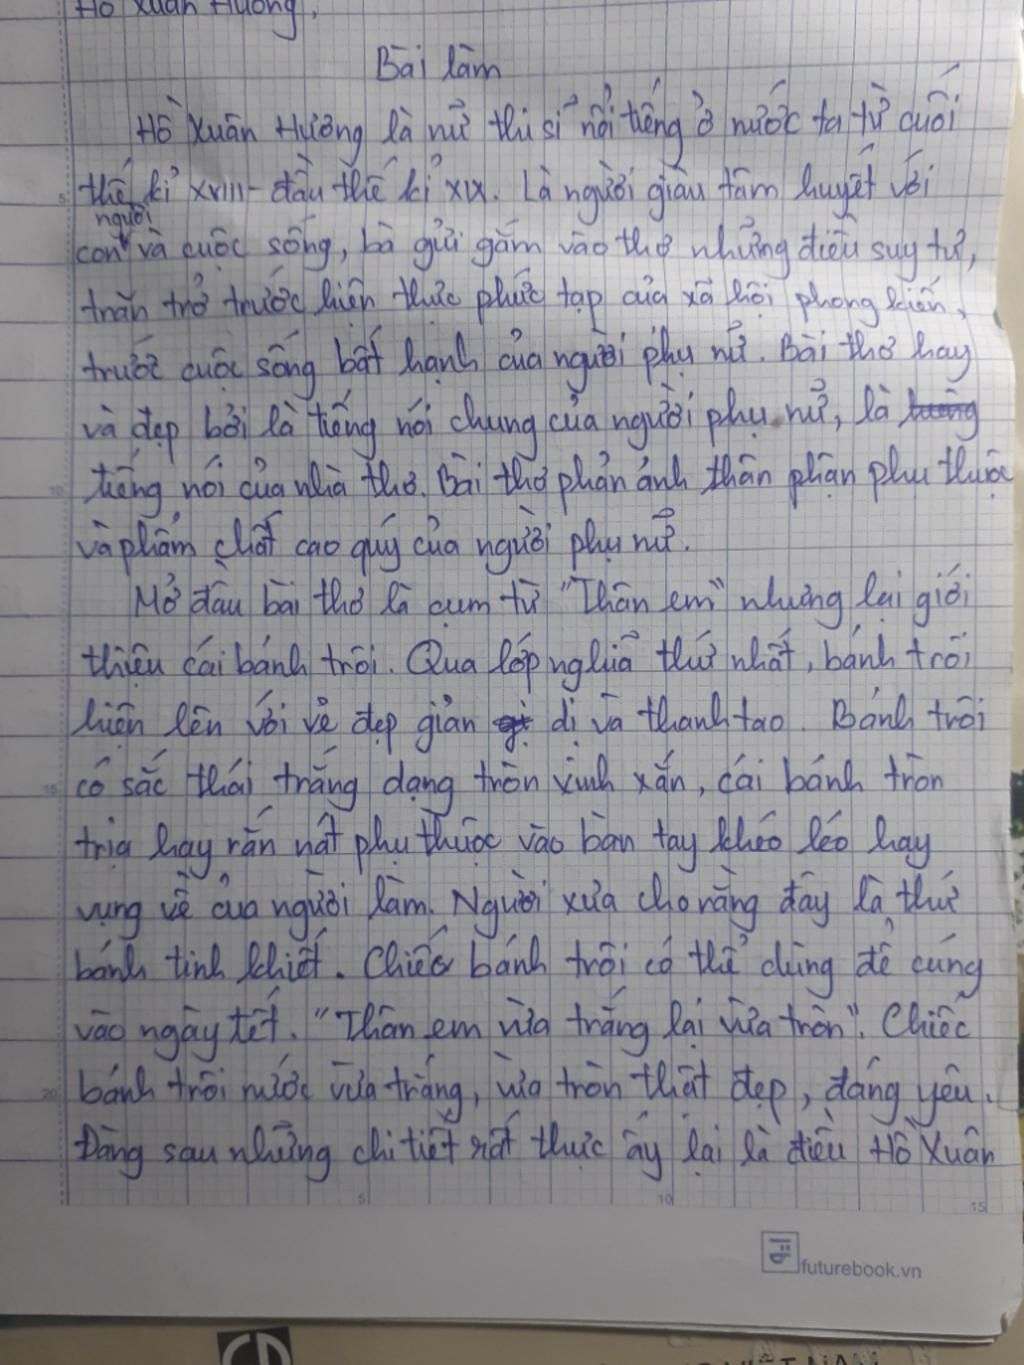 Hồ Xuân Hương,
Bài làm
Hồ Xuân Hương là nữ thi sĩ nổi tiếng ở nước ta từ cuối
thế kỉ XVIII - đầu thế kỉ XIX. Là người giàu tâm huyết với
con người và cuộc sống, bà gửi gắm vào thơ những điều suy tư,
trăn trở trước hiện thực phức tạp của xã hội phong kiến,
trước cuộc sống bất hạnh của người phụ nữ. Bài thơ hay
và đẹp bởi là tiếng nói chung của người phụ nữ, là
tiếng nói của nhà thơ. Bài thơ phản ánh thân phận phụ thuộc
và phẩm chất cao quý của người phụ nữ.
Mở đầu bài thơ là cụm từ "Thân em" nhưng lại giới
thiệu cái bánh trôi. Qua lớp nghĩa thứ nhất, bánh trôi
hiện lên với vẻ đẹp giản dị và thanh tao. Bánh trôi
có sắc thái trắng dạng tròn xinh xắn, cái bánh tròn
trịa hay rắn nát phụ thuộc vào bàn tay khéo léo hay
vụng về của người làm. Người xưa cho rằng đây là thứ
bánh tinh khiết. Chiếc bánh trôi có thể dùng để cúng
vào ngày tết. "Thân em vừa trắng lại vừa tròn". Chiếc
bánh trôi nước vừa trắng, vừa tròn thật đẹp, đáng yêu.
Đằng sau những chi tiết rất thực ấy lại là điều Hồ Xuân
5
10
15
20
5
10
15
futurebook.vn